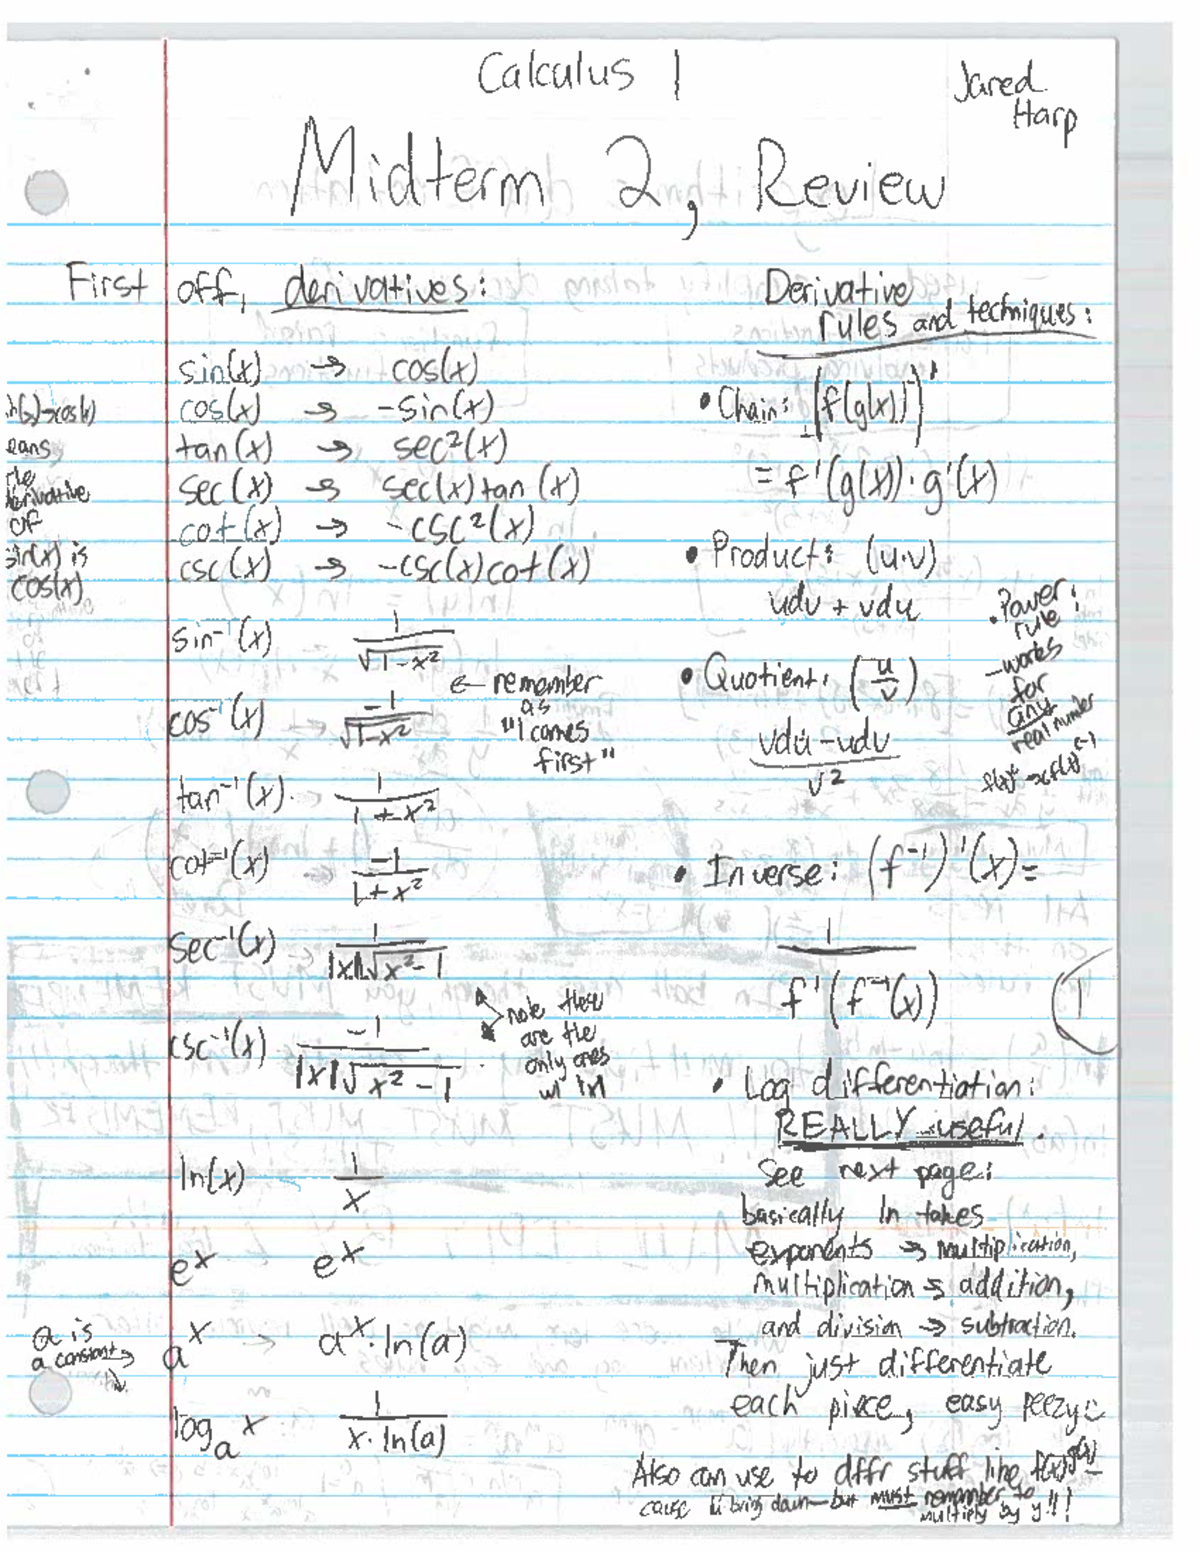 Calculus 1
Jared
Harp
Midterm 2, Review
First off, derivatives:
sin(x) → cos(x)
cos(x) → -sin(x)
tan(x) → sec²(x)
sec(x) → sec(x)tan(x)
cot(x) → -csc²(x)
csc(x) → -csc(x)cot(x)
→cos(x)
eans
derivative
of
sin(x) is
cos(x)
sin⁻¹(x) 1/√(1-x²)
cos⁻¹(x) -1/√(1-x²)
← remember
as
"1 comes
first"
tan⁻¹(x) 1/(1+x²)
cot⁻¹(x) -1/(1+x²)
sec⁻¹(x) 1/(|x|√(x²-1))
csc⁻¹(x) -1/(|x|√(x²-1))
note these
are the
only ones
w/ |x|
ln(x) 1/x
eˣ eˣ
a is
a constant →
aˣ aˣ·ln(a)
logₐx 1/(x·ln(a))
Derivative
rules and techniques:
• Chain: [f(g(x))]'
= f'(g(x))·g'(x)
• Product: (u·v)
udv + vdu
• Power
rule:
- works
for
any
real number
• Quotient: (u/v)
(vdu - udv)/v²
• Inverse: (f⁻¹)'(x) =
1/(f'(f⁻¹(x)))
1
• Log differentiation:
REALLY useful.
See next page:
basically ln takes
exponents → multiplication,
multiplication → addition,
and division → subtraction.
Then just differentiate
each piece, easy peezy
Also can use to diffr stuff like f(x)^g(x) –
cause ll bring down – but must remember to
multiply by y!!!